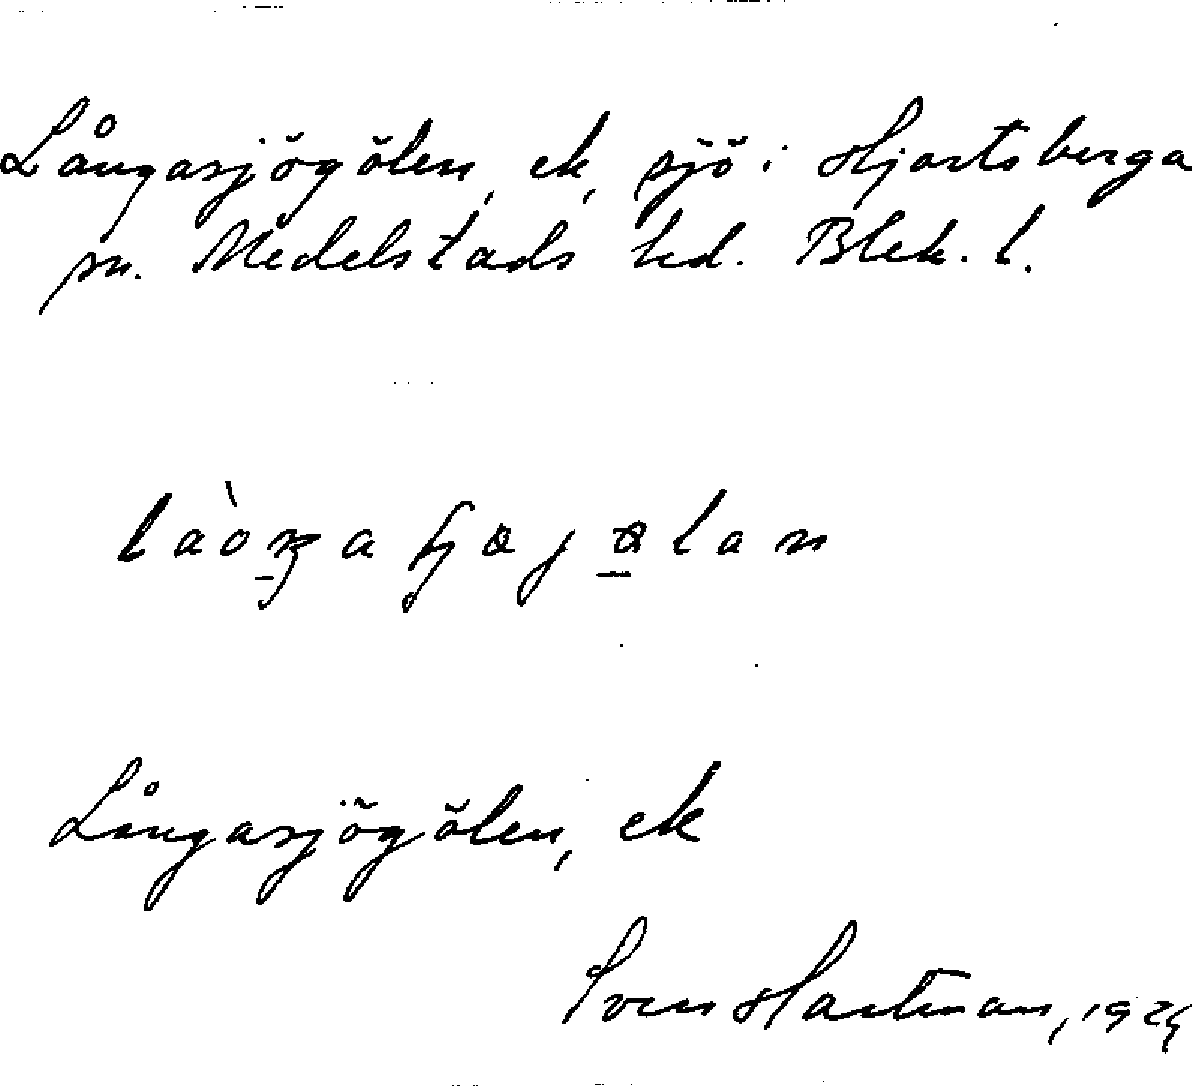 Långasjögölen, ek, sjö i Hjortsberga
sn. Medelstads hd. Blek. l.
Långasjögölen, ek
Sven Hartman, 192